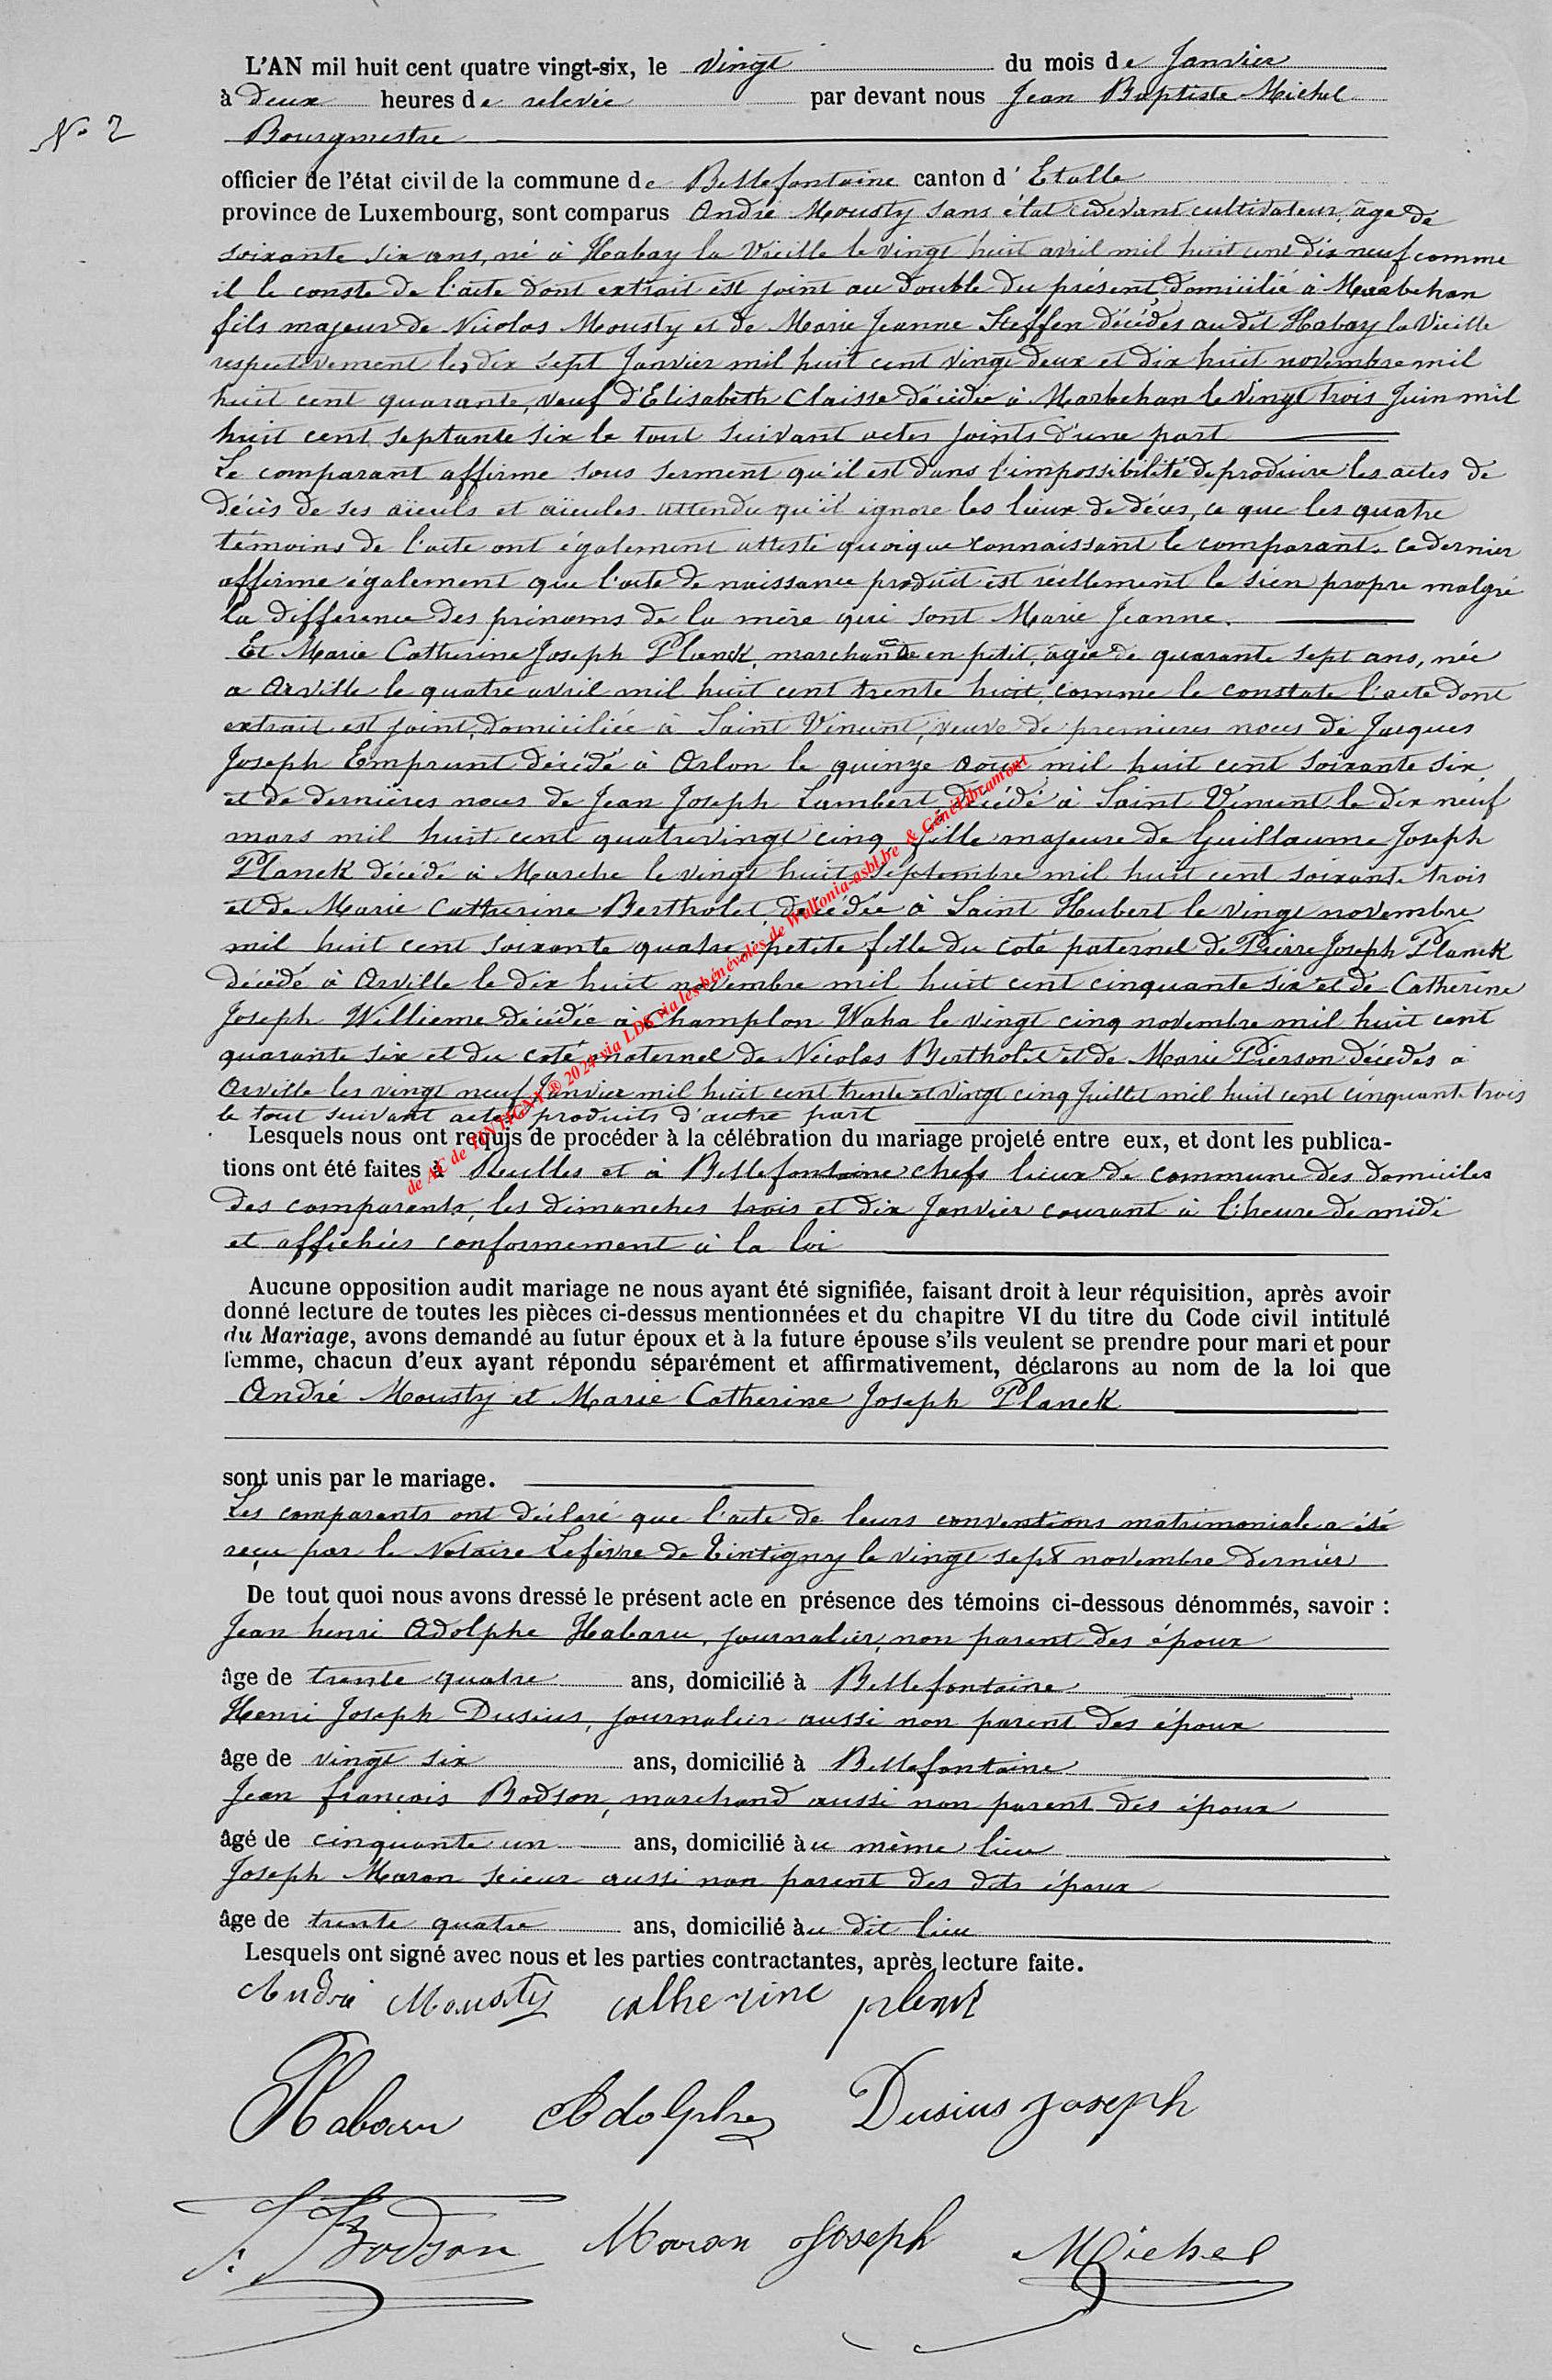 L'AN mil huit cent quatre vingt-six, le vingt du mois de Janvier
à deux heures de relevée par devant nous Jean Baptiste Michel
N° 2
Bourgmestre
officier de l'état civil de la commune de Bellefontaine canton d'Etalle
province de Luxembourg, sont comparus André Mousty sans état cidevant cultivateur, âge de
soixante six ans, né à Habay la Vieille le vingt huit avril mil huit cent dix neuf comme
il le conste de l'acte dont extrait est joint au double du présent, domicilié à Marbehan
fils majeur de Nicolas Mousty et de Marie Jeanne Steffen décédés au dit Habay la Vieille
respectivement les dix sept Janvier mil huit cent vingt deux et dix huit novembre mil
huit cent quarante, veuf d'Elisabeth Claisse décédée à Marbehan le vingt trois Juin mil
huit cent septante six le tout suivant actes joints d'une part
Le comparant affirme sous serment qu'il est dans l'impossibilité de produire les actes de
décès de ses aïeuls et aïeules attendu qu'il ignore les lieux de décès, ce que les quatre
témoins de l'acte ont également attesté quoique connaissant le comparant. Ce dernier
affirme également que l'acte de naissance produit est réellement le sien propre malgré
la différence des prénoms de la mère qui sont Marie Jeanne.
Et Marie Catherine Joseph Planck, marchande en petit, âgée de quarante sept ans, née
a Orville le quatre avril mil huit cent trente huit, comme le constate l'acte dont
extrait est joint, domiciliée à Saint Vincent, veuve de premieres noces de Jacques
Joseph Emprunt décédé à Arlon le quinze aout mil huit cent soixante six
et de dernières noces de Jean Joseph Lambert décédé à Saint Vincent le dix neuf
mars mil huit cent quatrevingt cinq fille majeure de Guillaume Joseph
Planck décédé à Marche le vingt huit septembre mil huit cent soixante trois
et de Marie Catherine Bertholet décédée à Saint Hubert le vingt novembre
mil huit cent soixante quatre, petite fille du coté paternel de Pierre Joseph Planck
décédé à Orville le dix huit novembre mil huit cent cinquante six et de Catherine
Joseph Willieme décédée à Champlon Waha le vingt cinq novembre mil huit cent
quarante six et du coté maternel de Nicolas Bertholet et de Marie Pierson décédés à
Orville les vingt neuf Janvier mil huit cent trente et vingt cinq Juillet mil huit cent cinquante trois
le tout suivant actes produits d'autre part
Lesquels nous ont requis de procéder à la célébration du mariage projeté entre eux, et dont les publica-
tions ont été faites à Rulles et à Bellefontaine chefs lieux de commune des domiciles
des comparents, les dimanches trois et dix Janvier courant à l'heure de midi
et affichées conformement à la loi
Aucune opposition audit mariage ne nous ayant été signifiée, faisant droit à leur réquisition, après avoir
donné lecture de toutes les pièces ci-dessus mentionnées et du chapitre VI du titre du Code civil intitulé
du Mariage, avons demandé au futur époux et à la future épouse s'ils veulent se prendre pour mari et pour
femme, chacun d'eux ayant répondu séparément et affirmativement, déclarons au nom de la loi que
André Mousty et Marie Catherine Joseph Planck
sont unis par le mariage.
Les comparents ont déclaré que l'acte de leurs conventions matrimoniale a été
reçu par le Notaire Lefèvre de Tintigny le vingt sept novembre dernier
De tout quoi nous avons dressé le présent acte en présence des témoins ci-dessous dénommés, savoir :
Jean henri Adolphe Habaru, journalier, non parent des époux
âge de trente quatre ans, domicilié à Bellefontaine
Henri Joseph Dusius, journalier aussi non parent des époux
âge de vingt six ans, domicilié à Bellefontaine
Jean françois Bodson, marchand aussi non parent des époux
âgé de cinquante un ans, domicilié àu même lieu
Joseph Maron scieur aussi non parent des dits époux
âge de trente quatre ans, domicilié àu dit lieu
Lesquels ont signé avec nous et les parties contractantes, après lecture faite.
André Mousty catherine plank
Habaru Adolphe Dusius joseph
F. Bodson Maron Joseph Michel
de AC de TINTIGNY ® 2024 via LDS via les bénévoles de Wallonia-asbl.be & GénéLibramont